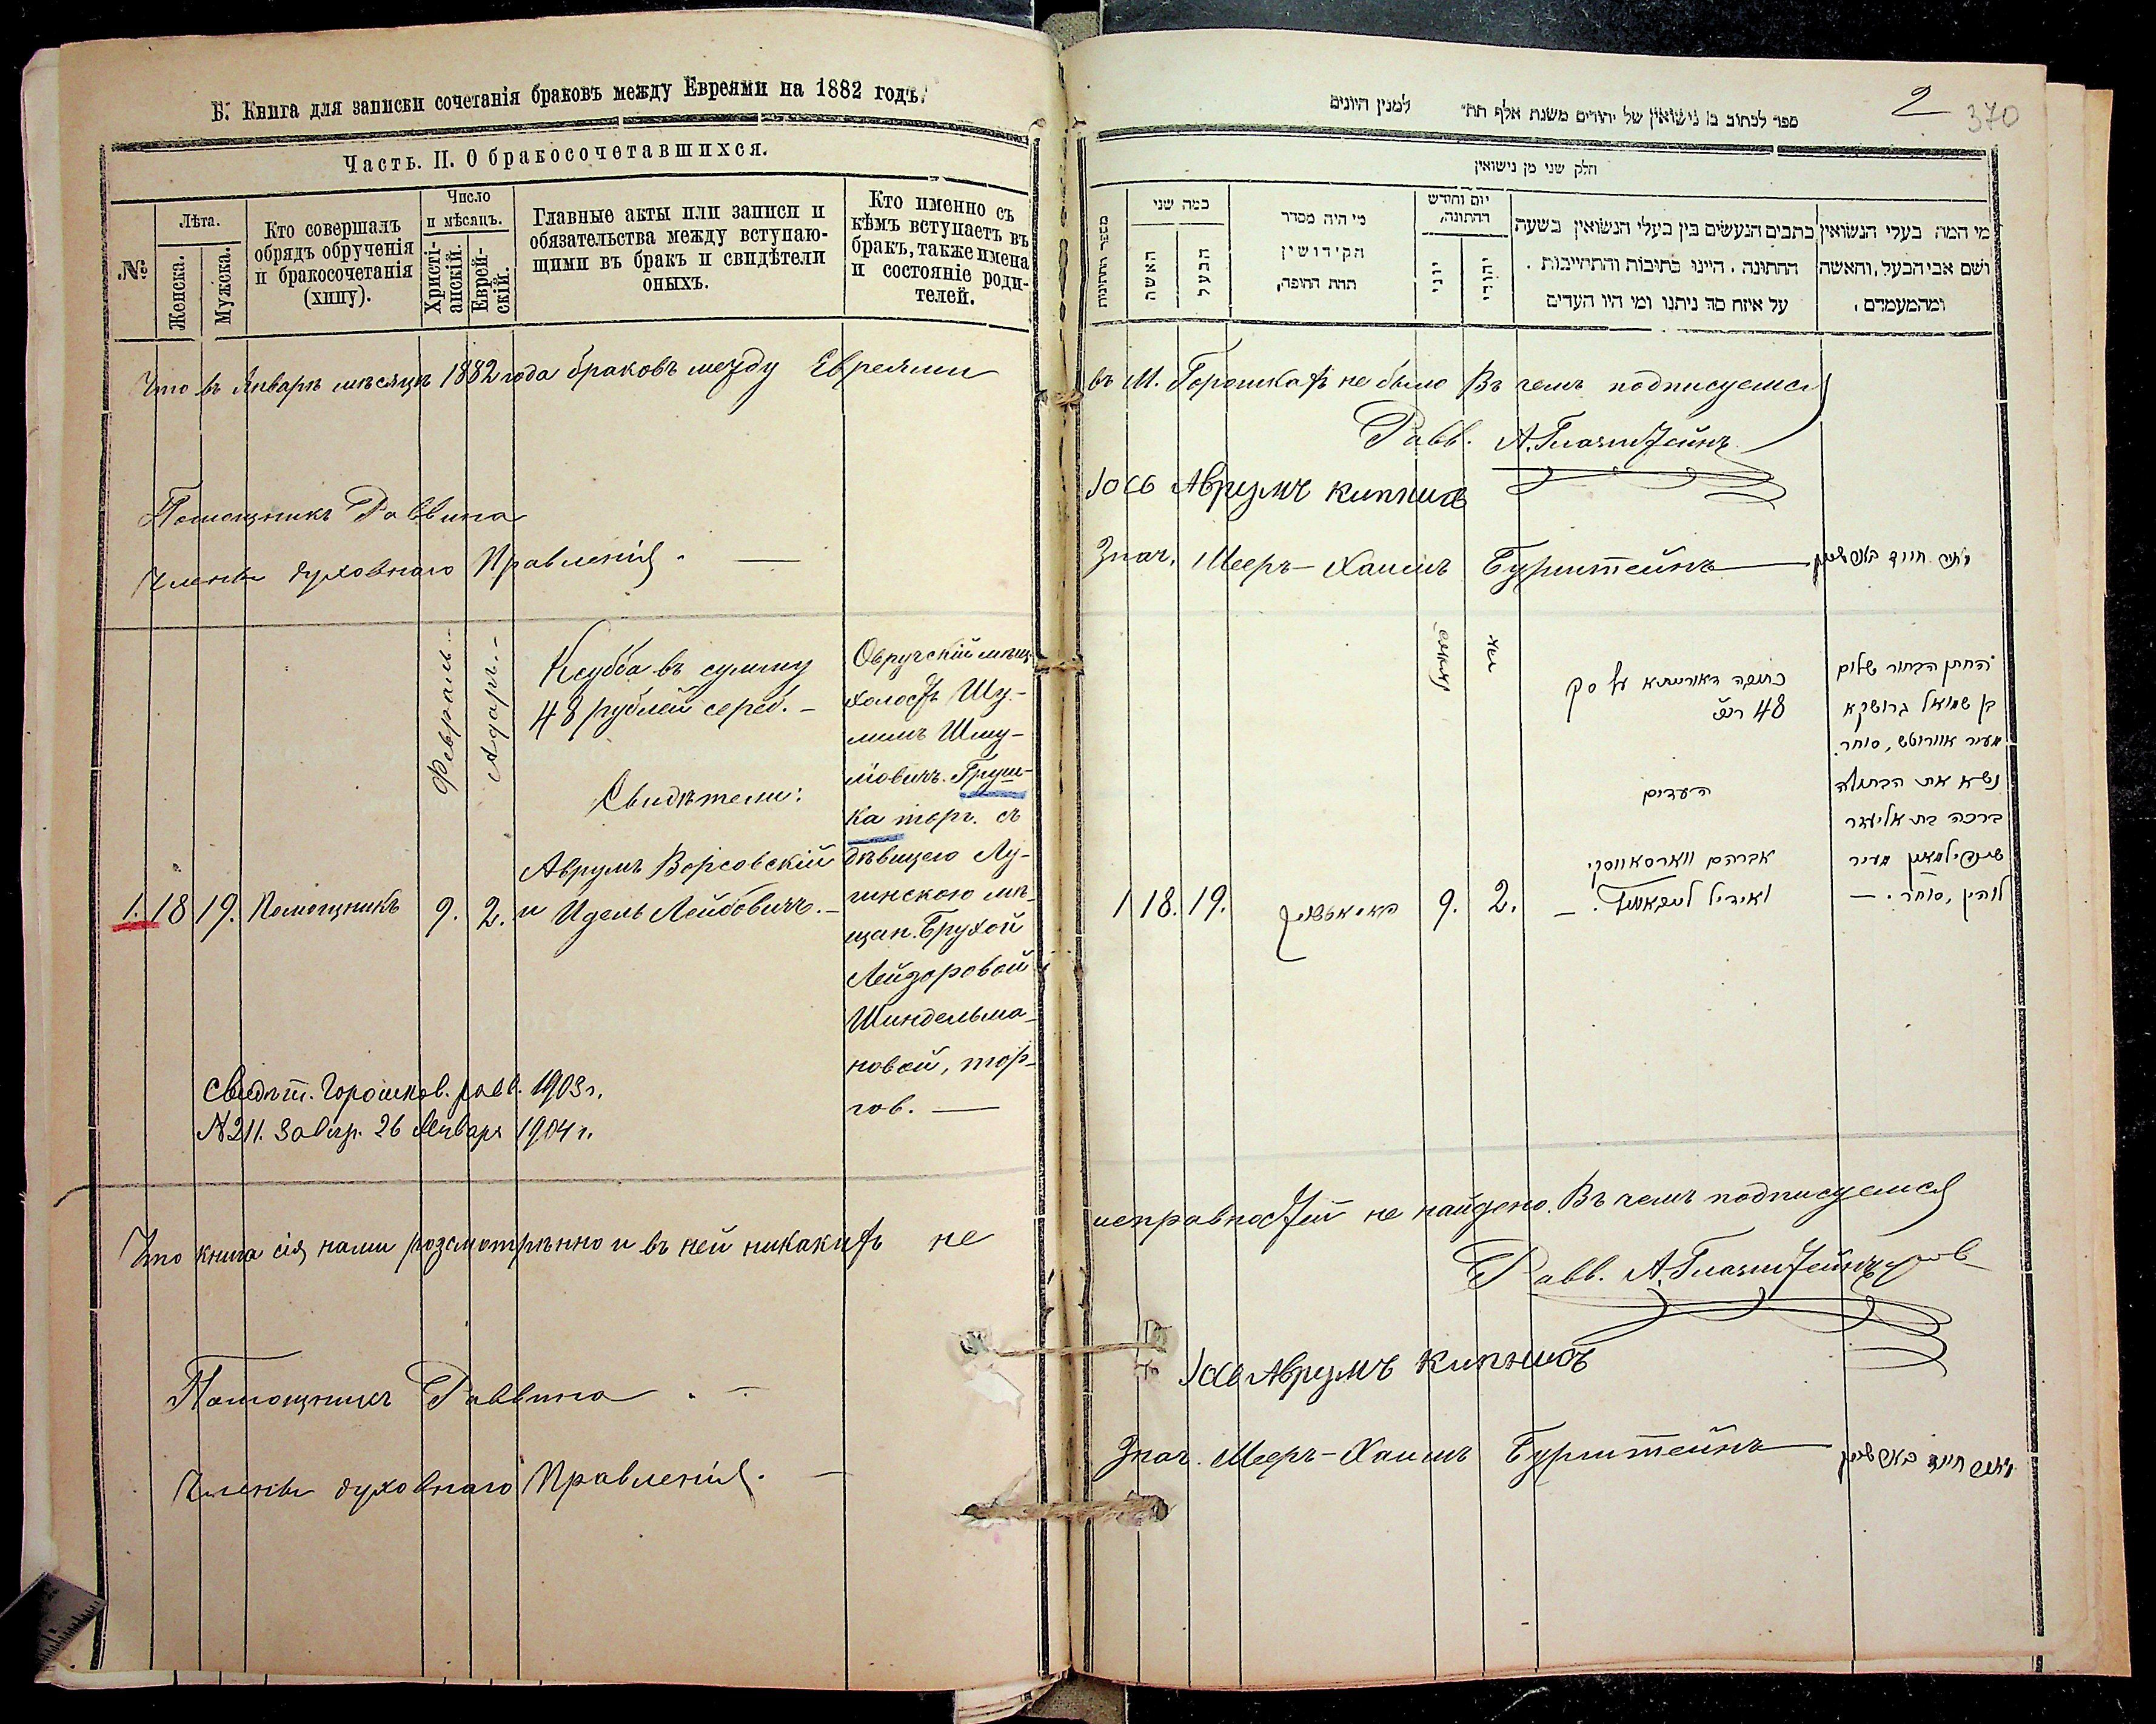 Б. Книга для записки сочетанія браковъ между Евреями на 1882 годъ.
Часть. II. О бракосочетавшихся.
№
Лѣта.
Женска.
Мужска.
Кто совершалъ
обрядъ обрученія
и бракосочетанія
(хипу).
Число
и мѣсяцъ.
Христі-
анскій.
Еврей-
скій.
Главные акты или записи и
обязательства между вступаю-
щими въ бракъ и свидѣтели
оныхъ.
Кто именно съ
кѣмъ вступаетъ въ
бракъ, также имена
и состояніе роди-
телей.
Что въ Январѣ мѣсяцѣ 1882 года браковъ между Евреями
Помощникъ Раввина
Члены духовнаго Правленія. —
Февраль.-
Адаръ.-
Ксубба въ сумму
48 рублей сереб. -
Свидѣтели:
Аврумъ Ворсовскій
и Идель Лейбовичъ. -
Овручскій мѣщ.
холостъ Шу-
лимъ Шму-
йовичъ. Груш-
ка торг. съ
дѣвицею Лу-
гинскою мѣ-
щан. Брухой
Лейзоровой
Шиндельма-
новой, тор-
гов. —
1. 18 19. Помощникъ 9. 2.
Свидѣт. Горошков. равв. 1903 г.
№ 211. Завѣр. 26 Января 1904 г.
Что книга сія нами розсмотрѣнно и въ ней никакихъ не
Помощникъ Раввина . -
Члены духовнаго Правленія. -
2
370
ספר לכתוב בו נישואין של יהודים משנת אלף תת״ למנין היונים
חלק שני מן נישואין
מספר החתונות
כמה שני
האשה
הבעל
מי היה מסדר
הקידושין
תחת החופה,
יום וחודש
החתונה,
יוני
יהודי
כתבים הנעשים בין בעלי הנשואין בשעה
החתונה. היינו כתובות והתחייבות.
על איזה סך ניתנו ומי היו העדים
מי המה בעלי הנשואין
ושם אבי הבעל, והאשה
ומהמעמדם,
въ М. Горошкахъ не было Въ чемъ подписуемся
Равв. А. Глазштейнъ
Іось Аврумъ Кипнисъ
Знач. Мееръ-Хаимъ Бурштейнъ —
כתובה דאורייתא על סך
48 רו״כ
העדים
אברהם ווארסאווסקי
ואידיל לייבאוויץ. —
החתן הבחור שלום
בן שמואל גרושקא
מעיר אוורוטש, סוחר.
נשא את הבתולה
ברכה בת אליעזר
שינדילמאן מעיר
לוהין, סוחר. —
1 18. 19. 9. 2.
исправностей не найдено. Въ чемъ подписуемся
Равв. А. Глазштейнъ
Іось Аврумъ Кипнисъ
Знач. Мееръ-Хаимъ Бурштейнъ —